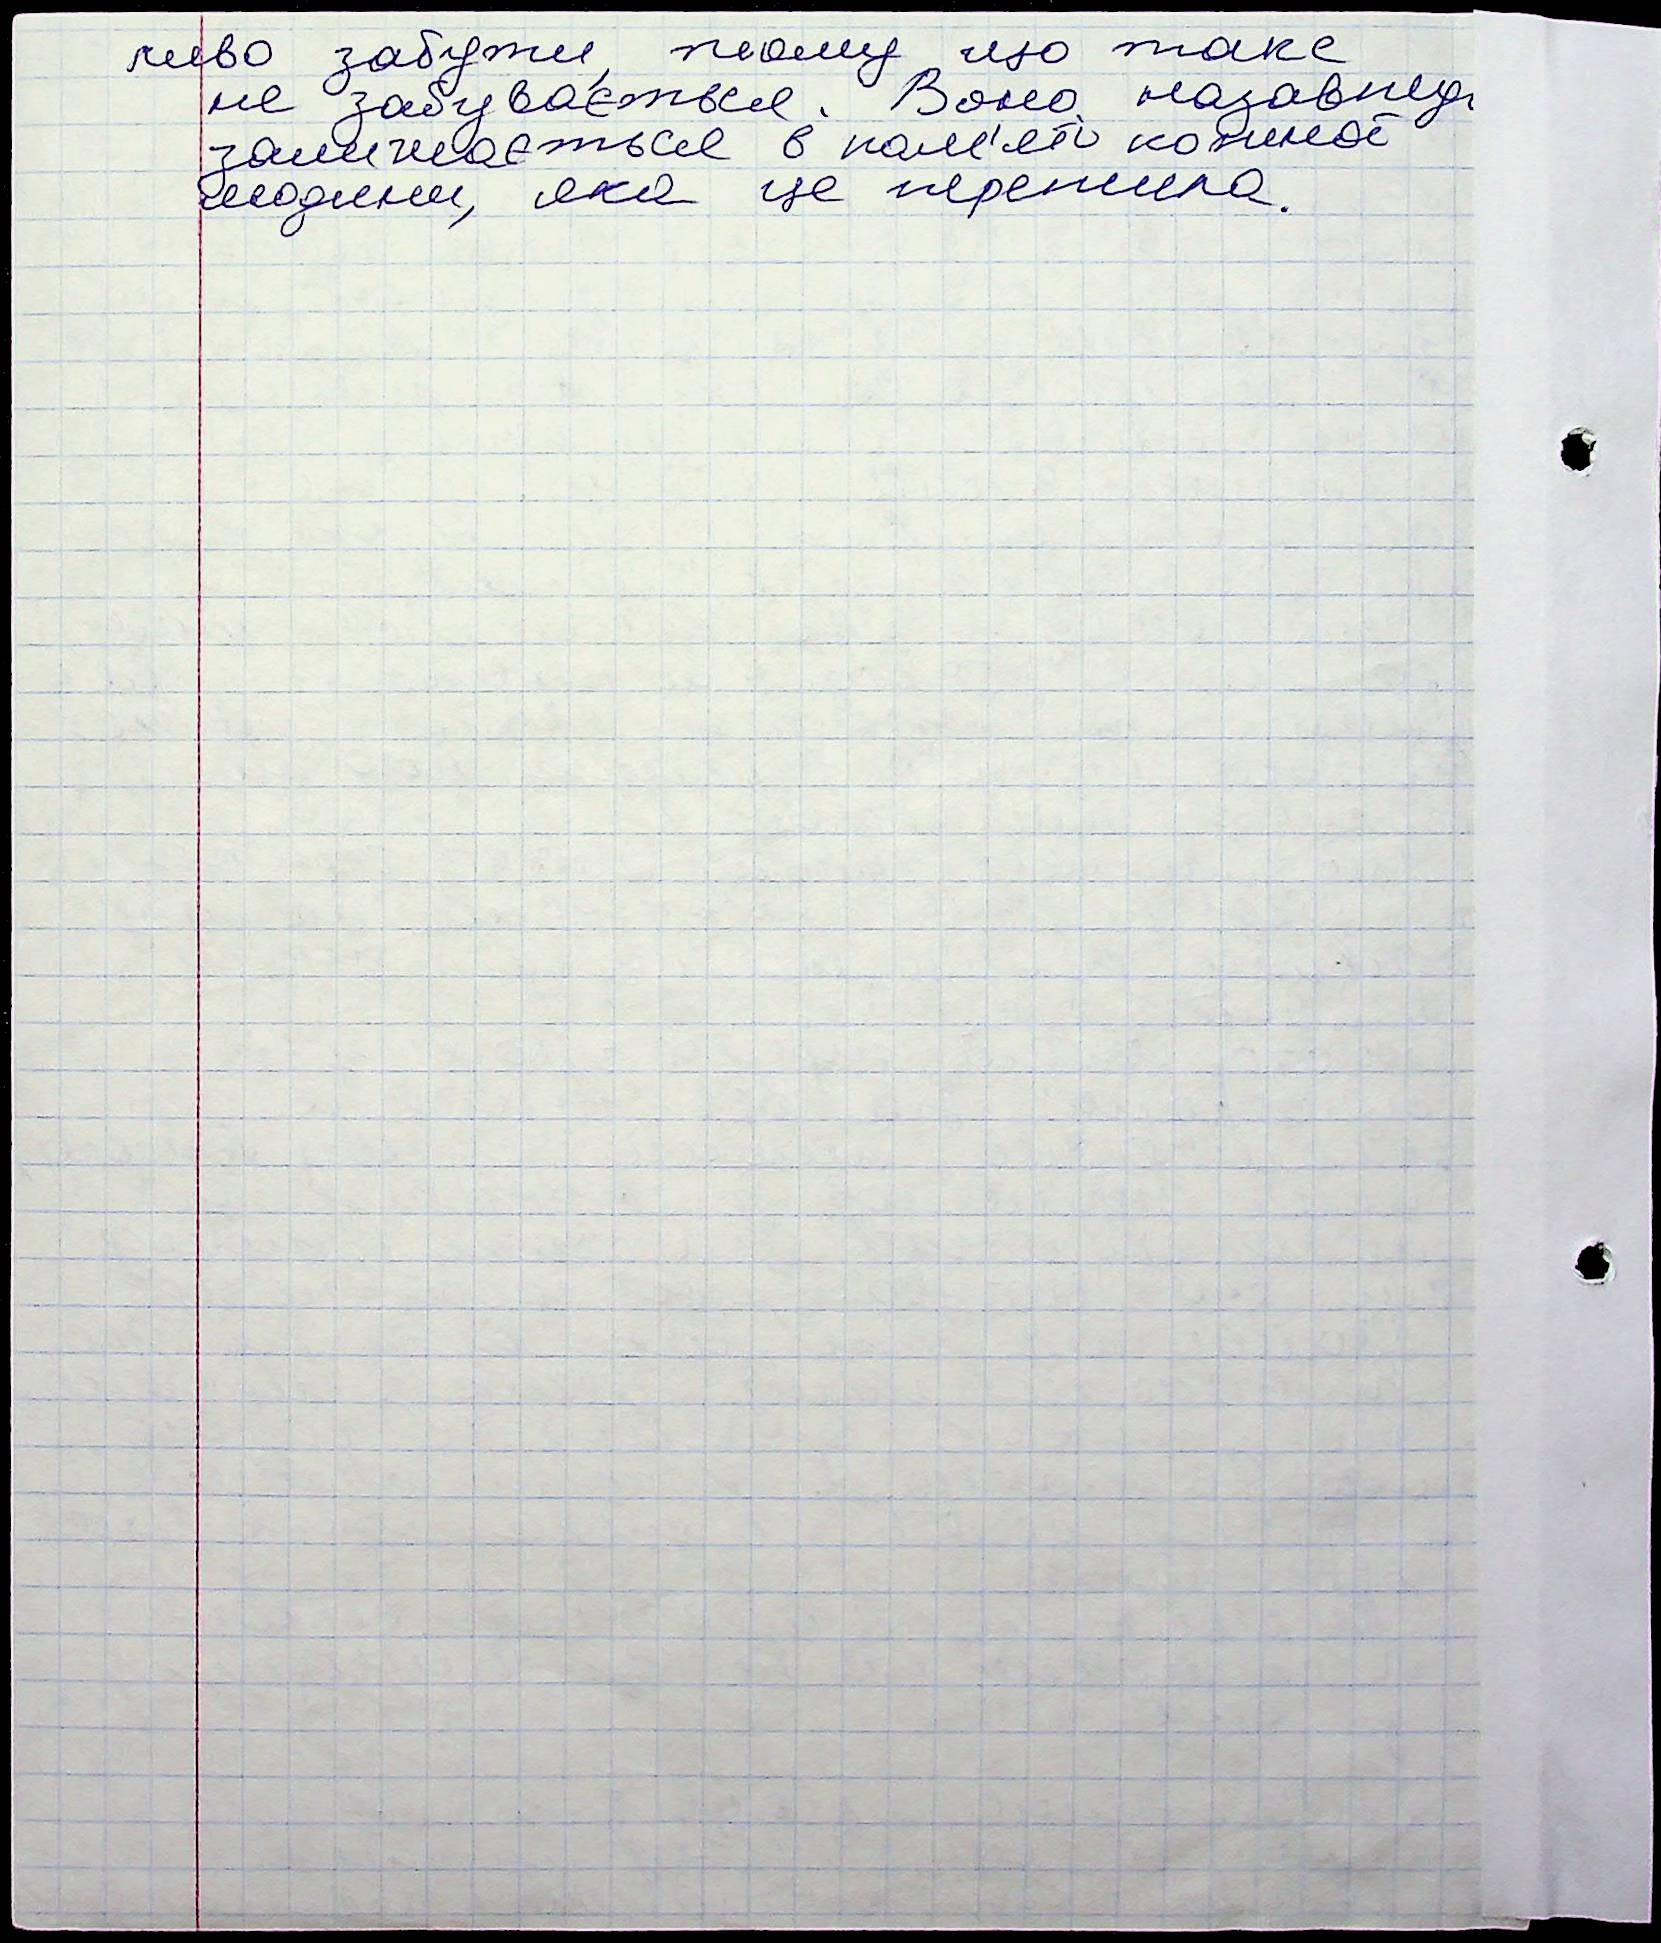 ливо забути, тому що таке
не забувається. Воно назавжди
залишається в пам'яті кожної
людини, яка це пережила.